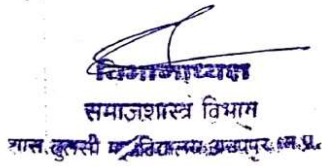 विभागाध्यक्ष
समाजशास्त्र विभाग
शास. तुलसी महाविद्यालय अनूपपुर म.प्र.